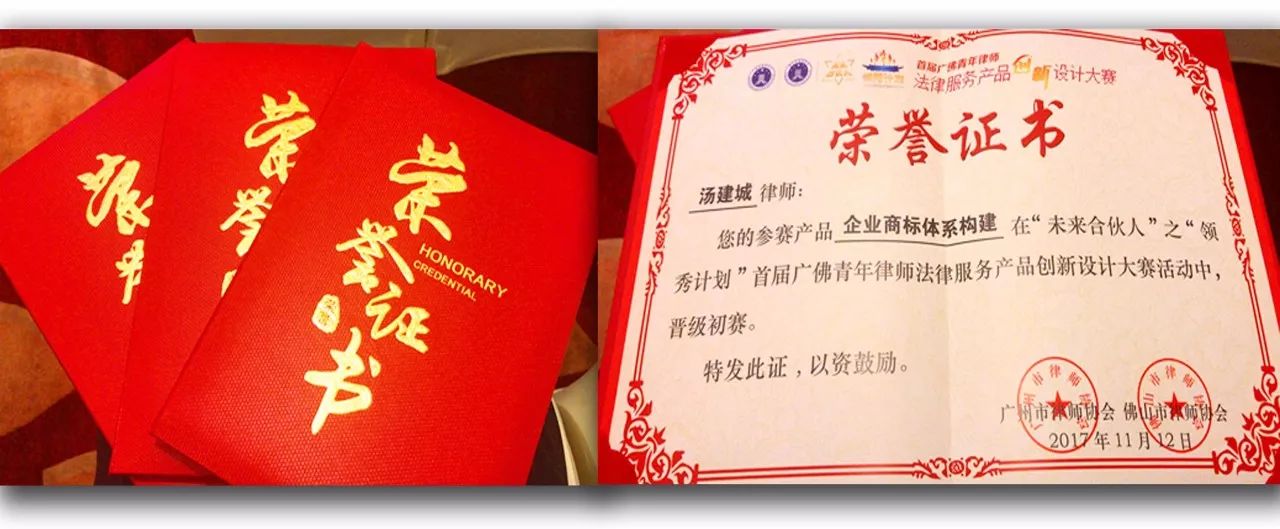 荣誉证书
荣誉
荣誉证书
HONORARY
CREDENTIAL
首届广佛青年律师
法律服务产品创新设计大赛
荣誉证书
汤建城律师：
您的参赛产品 企业商标体系构建 在“未来合伙人”之“领
秀计划”首届广佛青年律师法律服务产品创新设计大赛活动中，
晋级初赛。
特发此证，以资鼓励。
广州市律师协会 佛山市律师协会
2017年11月12日